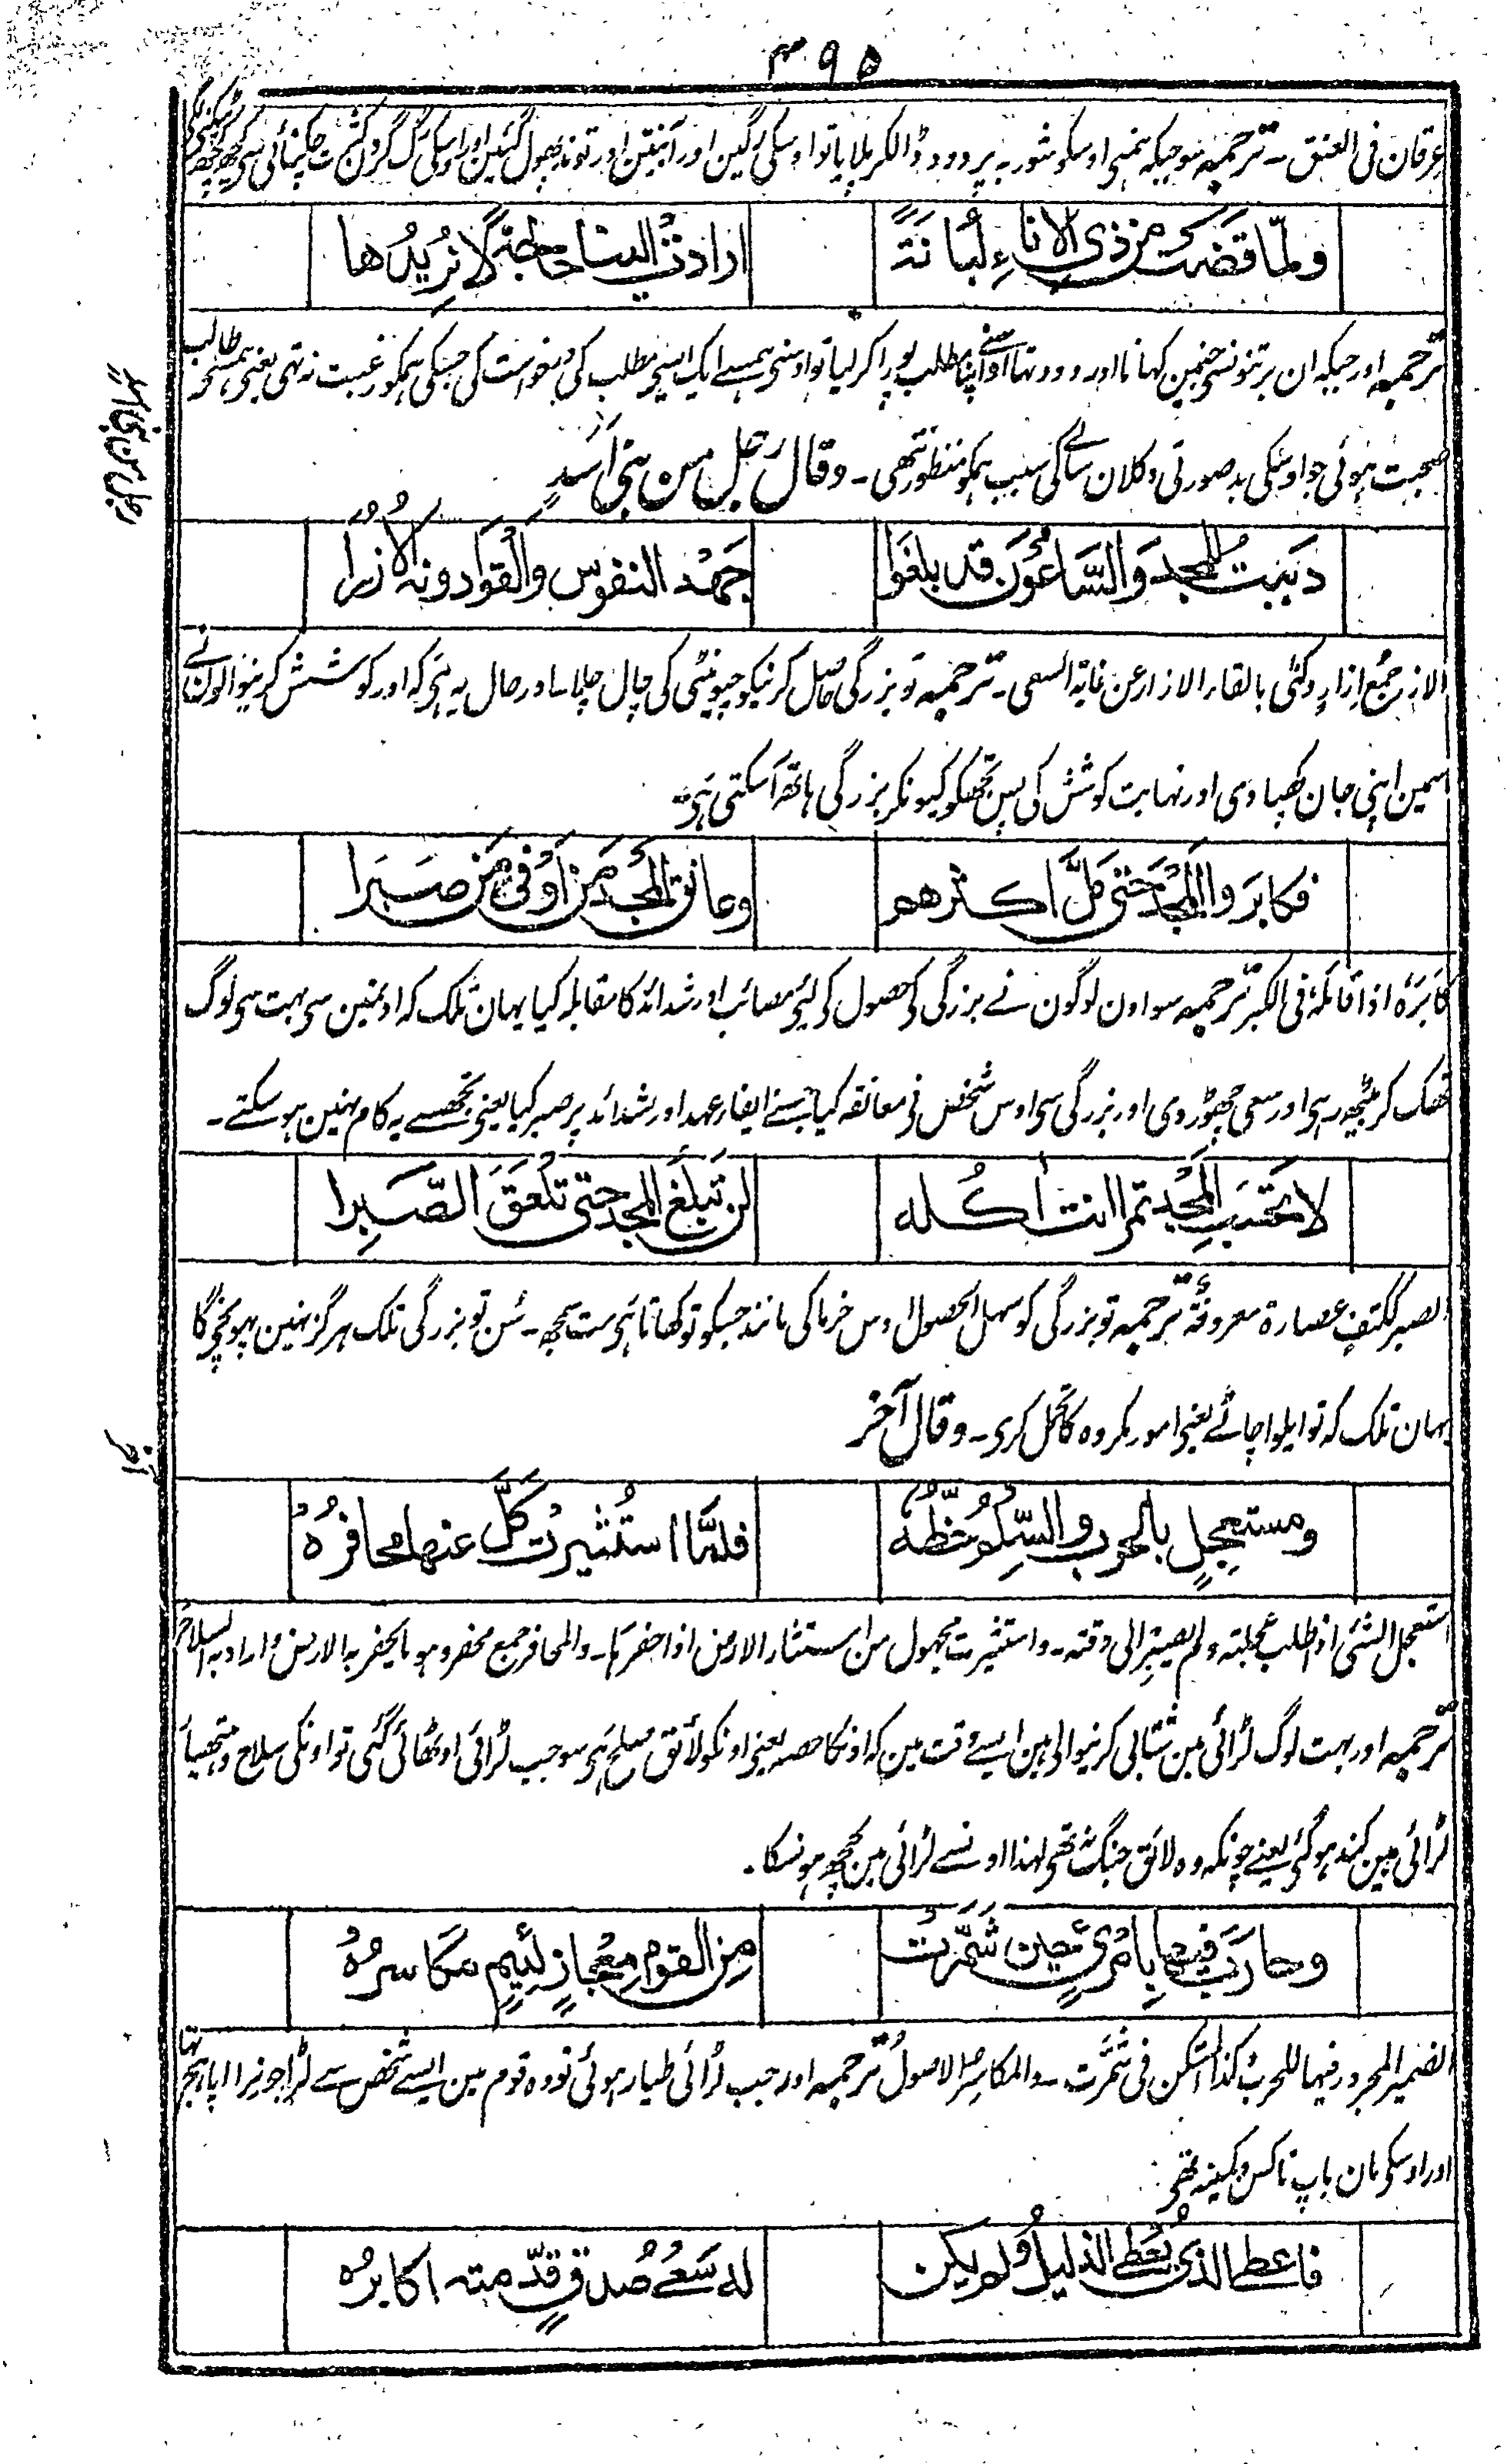 ۴۹۵
عرقان فی العنق ۔ ترجمہ سو جبکہ ہمنی اوسکو شوربہ پر دودہ ڈالکر پلایا تو اوسکی رگین اور آنتین اور توند پھول گئین اور اوسکی رگ گردن کثرت چکنائی سی
ولمّا قضت من ذی الاناءِ لُبانَةً ارادت الینا حاجةً لا نُریدُها
ترجمہ اور جبکہ ان برتنونسی جنمین کہانا اور دودہ تہا اوسنے اپنا مطلب پورا کر لیا تو اوسنی ہمسے ایک ایسی مطلب کی درخواست کی جسکی ہمکو رغبت نہ تہی یعنی ہمسے طالب
صحبت ہوئی جو اوسکی بد صورتی و کلان سالے کی سبب ہمکو منظور نتھی ۔ وقال رجل من بنی اسدٍ
دَبَبتَ للمجد والسّاعُونَ قد بلغوا جَهْدَ النفوس والقَوا دونه الاُزُرا
الازر جمع ازار وکنّی بالقاء الازار عن غایة السعی ۔ ترجمہ تو بزرگی حاصل کرنیکو چیونٹی کی چال چلا اور حال یہ ہی کہ اور کوشش کرنیوالون نے
اسمین اپنی جان کھپا دی اور نہایت کوشش کی پس تجھکو کیونکر بزرگی ہاتھ آسکتی ہی
فکابَروا المجدَ حتی مَلَّ اکثرهم وعانق المجدَ مَن اَوفیٰ ومَن صَبَرا
کابَرَہٗ اذا فاکہٗ فی الکبر ترجمہ سو اون لوگون نے بزرگی کی حصول کی لئی مصائب اور شدائد کا مقابلہ کیا یہان تلک کہ اونمین سی بہت سی لوگ
تھک کر بیٹھ رہی اور سعی چھوڑ دی اور بزرگی سی اوس شخص نی معانقہ کیا جسنے ایفاء عہد اور شدائد پر صبر کیا یعنی تجھسے یہ کام نہین ہو سکتے ۔
لا تحسَبِ المجدَ تمرا انت اٰکُله لن تبلُغَ المجدَ حتی تَلعَقَ الصَّبِرا
الصبر ککتف عصارة معروفة ترجمہ تو بزرگی کو سہل الحصول اوس خرما کی مانند جسکو تو کھاتا ہی مت سمجھ ۔ سُن تو بزرگی تلک ہرگز نہین پہونچیگا
یہان تلک کہ تو ایلوا چاٹے یعنی امور مکروہ کا تحمل کری ۔ وقال آخر
ومستعجِلٍ بالحربِ والسِّلمُ حظُّهُ فلمّا استُثیرت کَلَّ عنها محافرُهُ
استعجل الشئ اذا طلب عجلته ولم یصبر الی وقته ۔ واستثیرت مجہول من استثار الارض اذا حفرہا ۔ والمحافر جمع محفر وہو ما یحفر به الارض واراد به السلاح
ترجمہ اور بہت لوگ لڑائی مین شتابی کرنیوالی ہین ایسے وقت مین کہ اونکا حصہ یعنی اونکو لائق صلح ہی سو جب لڑائی اوٹھائی گئی تو اونکی سلاح و ہتھیار
لڑائی مین کند ہو گئی یعنے چونکہ وہ لائق جنگ نتھی لہذا اونسے لڑائی مین کچھ ہو نسکا ۔
وحارَبَ فیها بِامرئٍ حین شَمَّرَت من القومِ مِعجازٍ لَئیمٍ مَکاسِرُهُ
الضمیر المجرور فیہا للحرب کذا المستکن فی شمرت ۔ والمکاسر الاصول ترجمہ اور جب لڑائی طیار ہوئی تو وہ قوم مین ایسے شخص سے لڑا جو نرا اپاہج تہا
اور اوسکی مان باپ ناکس و کمینہ تھی
فاعطی الذی یُعطی الذلیلُ ولم یکن له سَعیُ صدقٍ قدّمته اکابرُه
رجل من بنی اسد
آخر